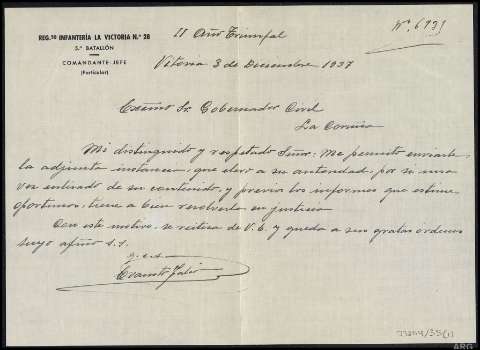 REG.to INFANTERÍA LA VICTORIA N.º 28
5.º BATALLÓN
COMANDANTE JEFE
(Particular)
II Año Triunfal
Vitoria 3 de Diciembre 1937
Excmo Sr. Gobernador Civil
La Coruña
Mi distinguido y respetado Señor: Me permito enviarle
la adjunta instancia, que elevo a su autoridad, por si una
vez enterado de su contenido, y previo los informes que estime
oportunos, tiene a bien resolverla en justicia
Con este motivo, se reitera de V.E. y queda a sus gratas ordenes
suyo afmo s.s.
q.e.s.m.
Evaristo